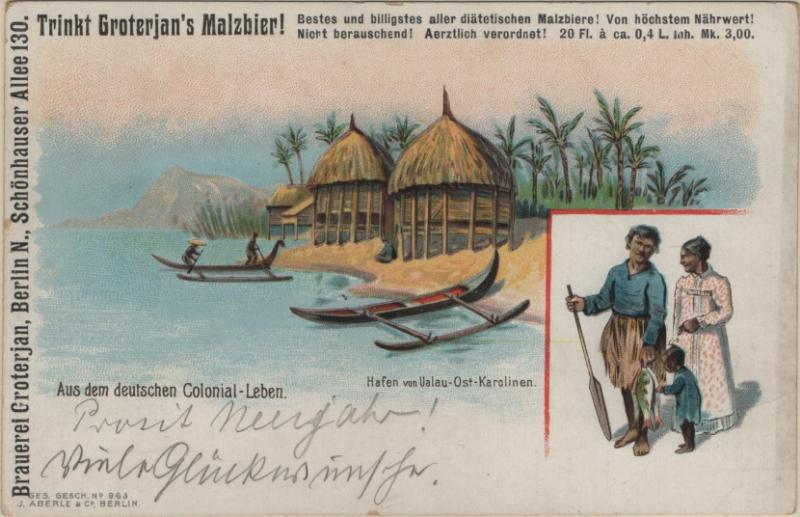 Trinkt Groterjan's Malzbier!
Bestes und billigstes aller diätetischen Malzbiere! Von höchstem Nährwert!
Nicht berauschend! Aerztlich verordnet! 20 Fl. à ca. 0,4 L. Inh. Mk. 3,00.
Brauerei Groterjan, Berlin N., Schönhauser Allee 130.
Hafen von Ualau-Ost-Karolinen.
Aus dem deutschen Colonial-Leben.
Prosit Neujahr!
Viele Glückwünsche.
GES. GESCH. Nº 963
J. ABERLE & Cº BERLIN.